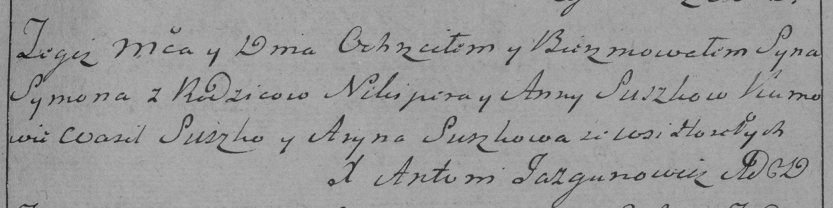 Tegiż Mca y Dnia Ochrzciłem y Bierzmowałem Syna
Symona z Rodzicow Nikipera y Anny Suszkow Kumo
wie Wasil Suszko y Aryna Suszkowa ze wsi Horełych
X Antoni Jazgunowicz